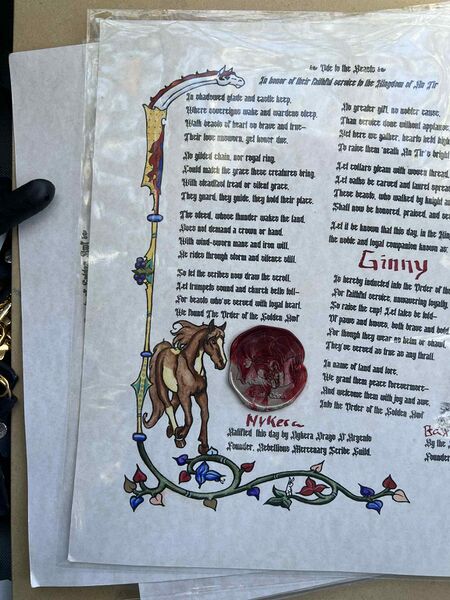 Ode to the Beasts
In honor of their faithful service to the Kingdom of An Tir
In shadowed glade and castle keep,
Where sovereigns wake and wardens sleep,
Walk beasts of heart so brave and true—
Their love unsworn, yet honor due.
No gilded chain, nor royal ring,
Could match the grace these creatures bring.
With steadfast tread or silent grace,
They guard, they guide, they hold their place.
The steed, whose thunder wakes the land,
Does not demand a crown or hand.
With wind-sworn mane and iron will,
He rides through storm and silence still.
So let the scribes now draw the scroll,
Let trumpets sound and church bells toll—
For beasts who've served with loyal heart,
We found The Order of the Golden
Nykera
Ratified this day by Nykera Drago D'Argento
Founder, Rebellious Mercenary Scribe Guild.
No greater gift, no nobler cause,
Than service done without applause.
Yet here we gather, hearts held high
To raise them 'neath An Tir's bright
Let collars gleam with woven thread,
Let oaths be carved and laurel spread
These beasts, who walked by knight an
Shall now be honored, praised, and
Let it be known that this day, in the King
the noble and loyal companion known as:
Ginny
Is hereby inducted into the Order of the
For faithful service, unwavering loyalty
So raise the cup! Let tales be told—
Of paws and hooves, both brave and bold
For though they wear no helm or shawl,
They've served as true as any thrall.
In name of land and lore,
We grant them peace forevermore—
And welcome them with joy and awe,
Into the Order of the Golden
By the
Founder